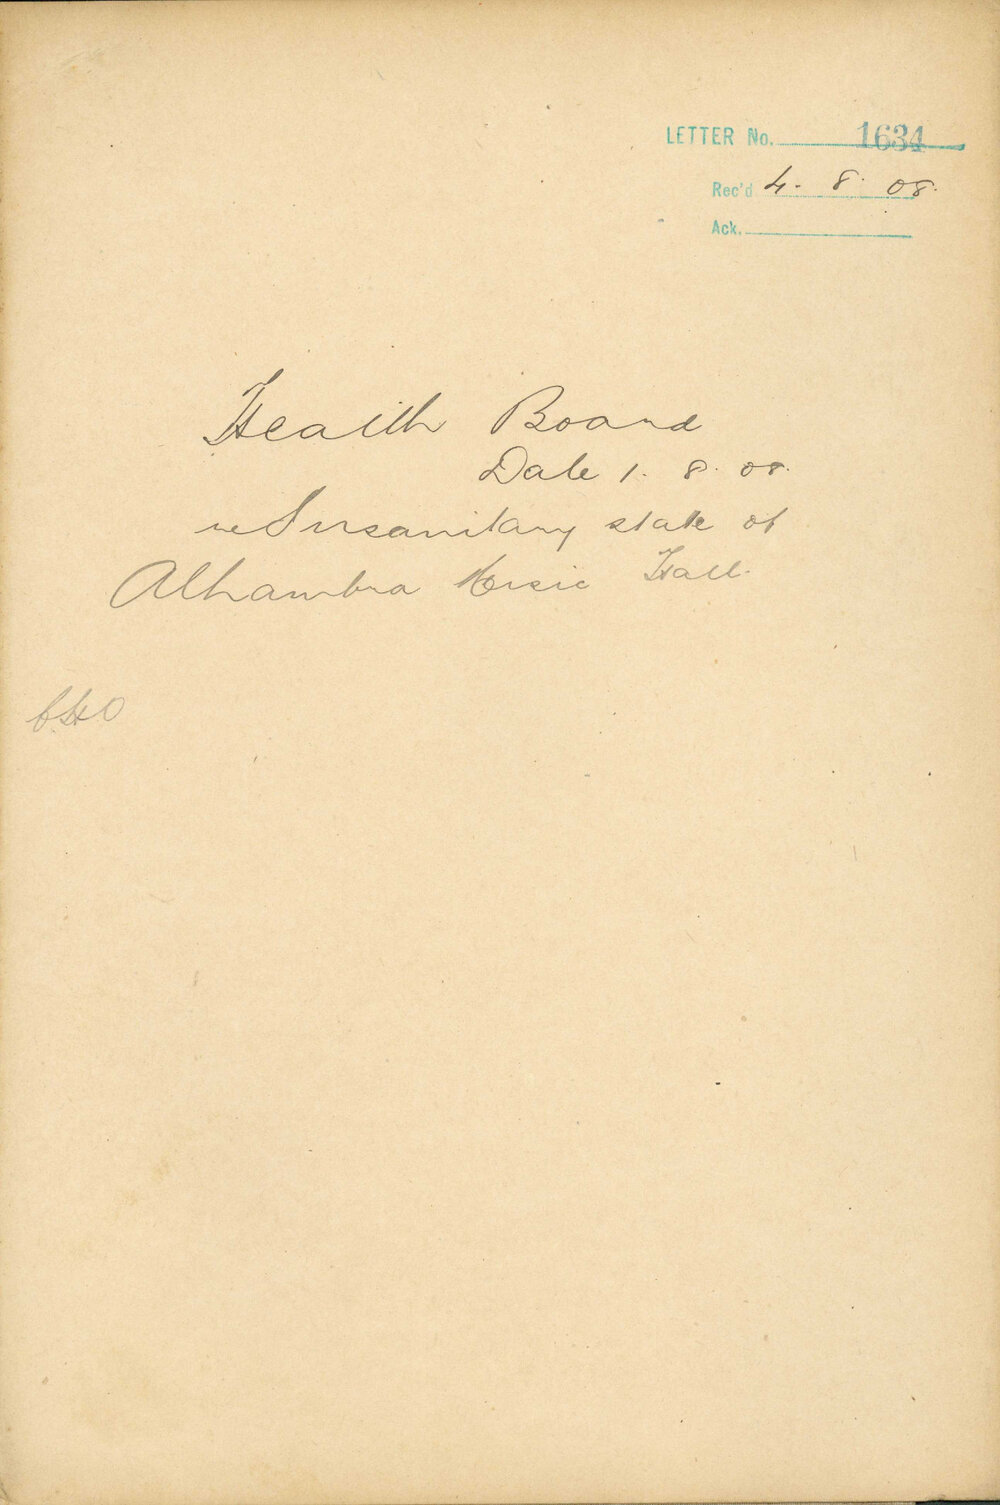 LETTER No. 1634
Rec'd 4. 8. 08.
Ack.
Health Board
Date 1. 8. 08.
re Insanitary state of
Alhambra Music Hall.